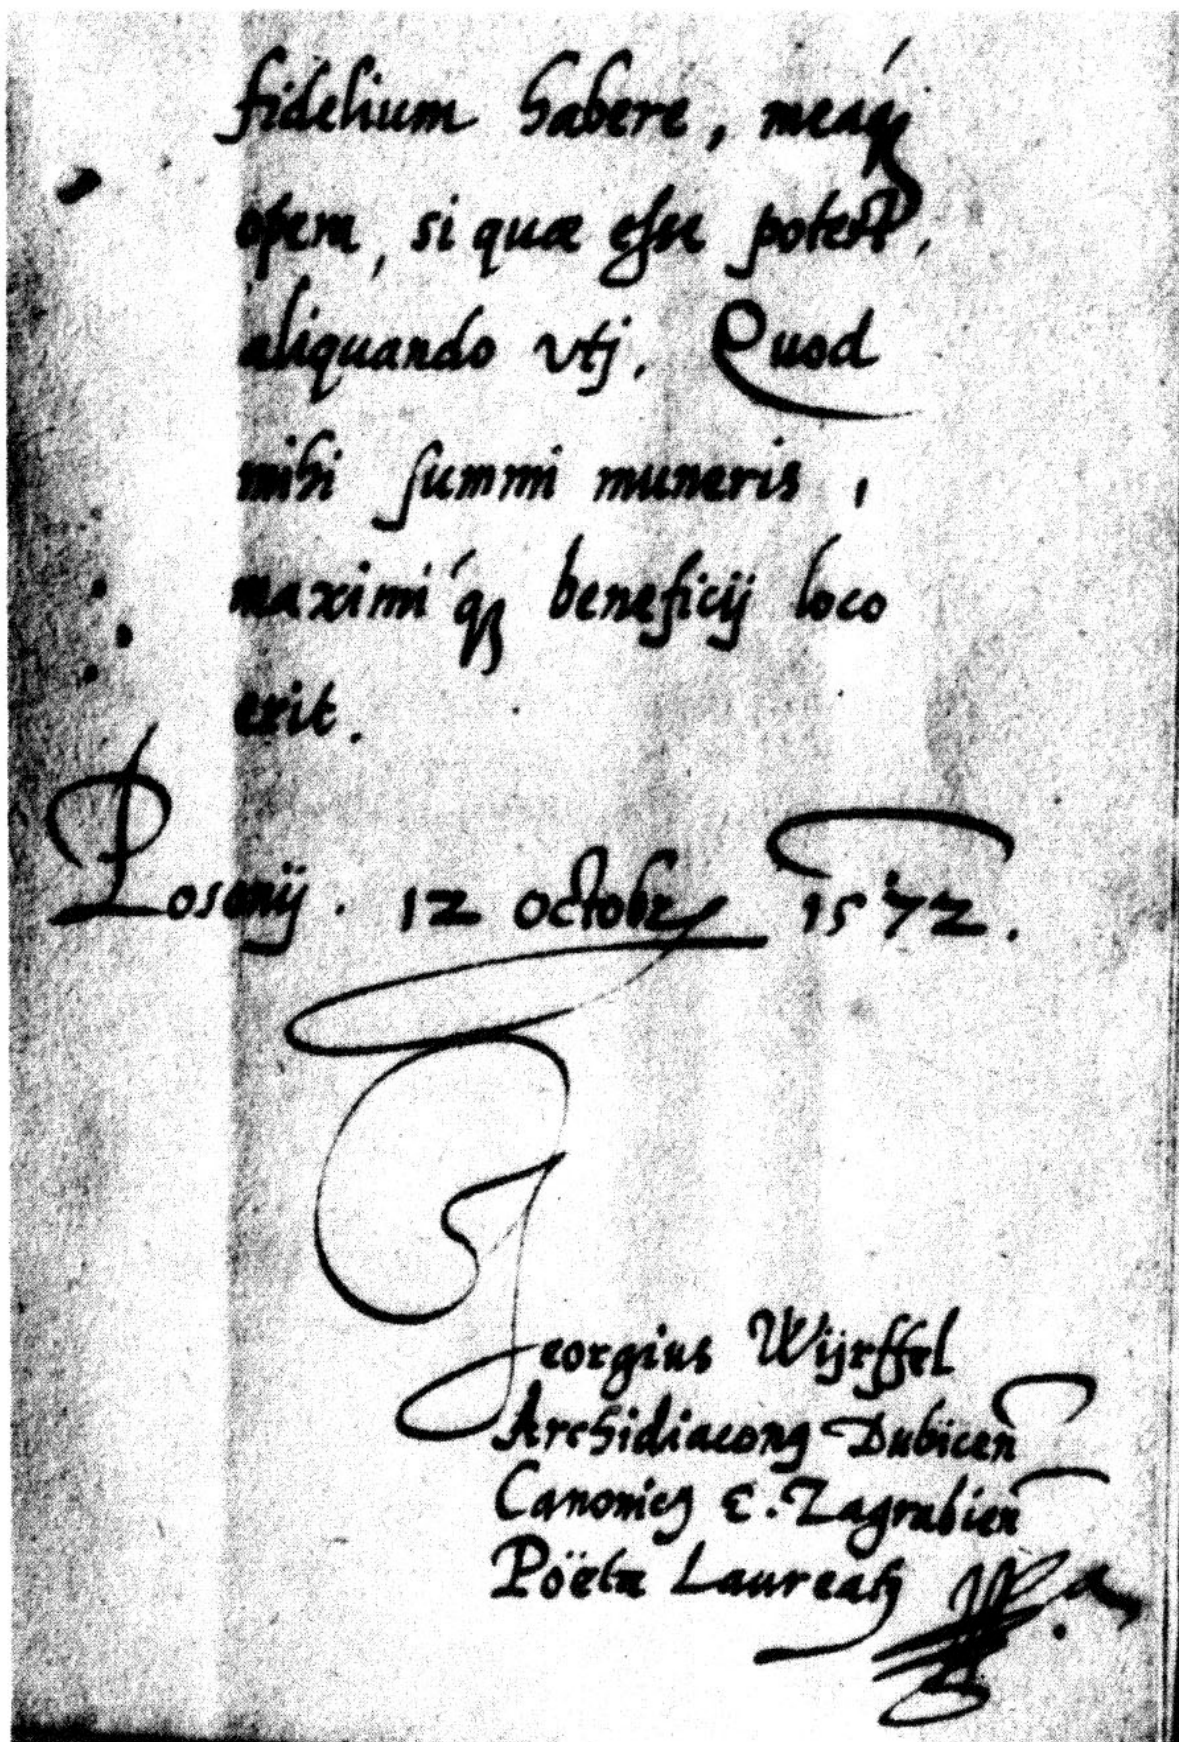 fidelium habere, meaq́ꝫ
opem, si quæ esse potest,
aliquando vtj. Quod
mihi summi muneris,
maximi q́ꝫ beneficij loco
erit.
Posonij. 12 Octobr 1572.
Georgius Wijrffel
Archidiaconꝰ Dubicen̄
Canonicꝰ E. Zagrabien̄
Pöeta Laureatꝰ